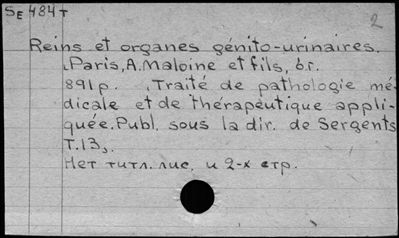 SE 484т
2
Reins et organes génito-urinaires.
Paris, A. Maloine et fils, б.г.
891 p. Traité de pathologie mé-
dicale et de thérapeutique appli-
quée. Publ. sous la dir. de Sergents
T.13.
Нет титл. лис. и 2-х стр.